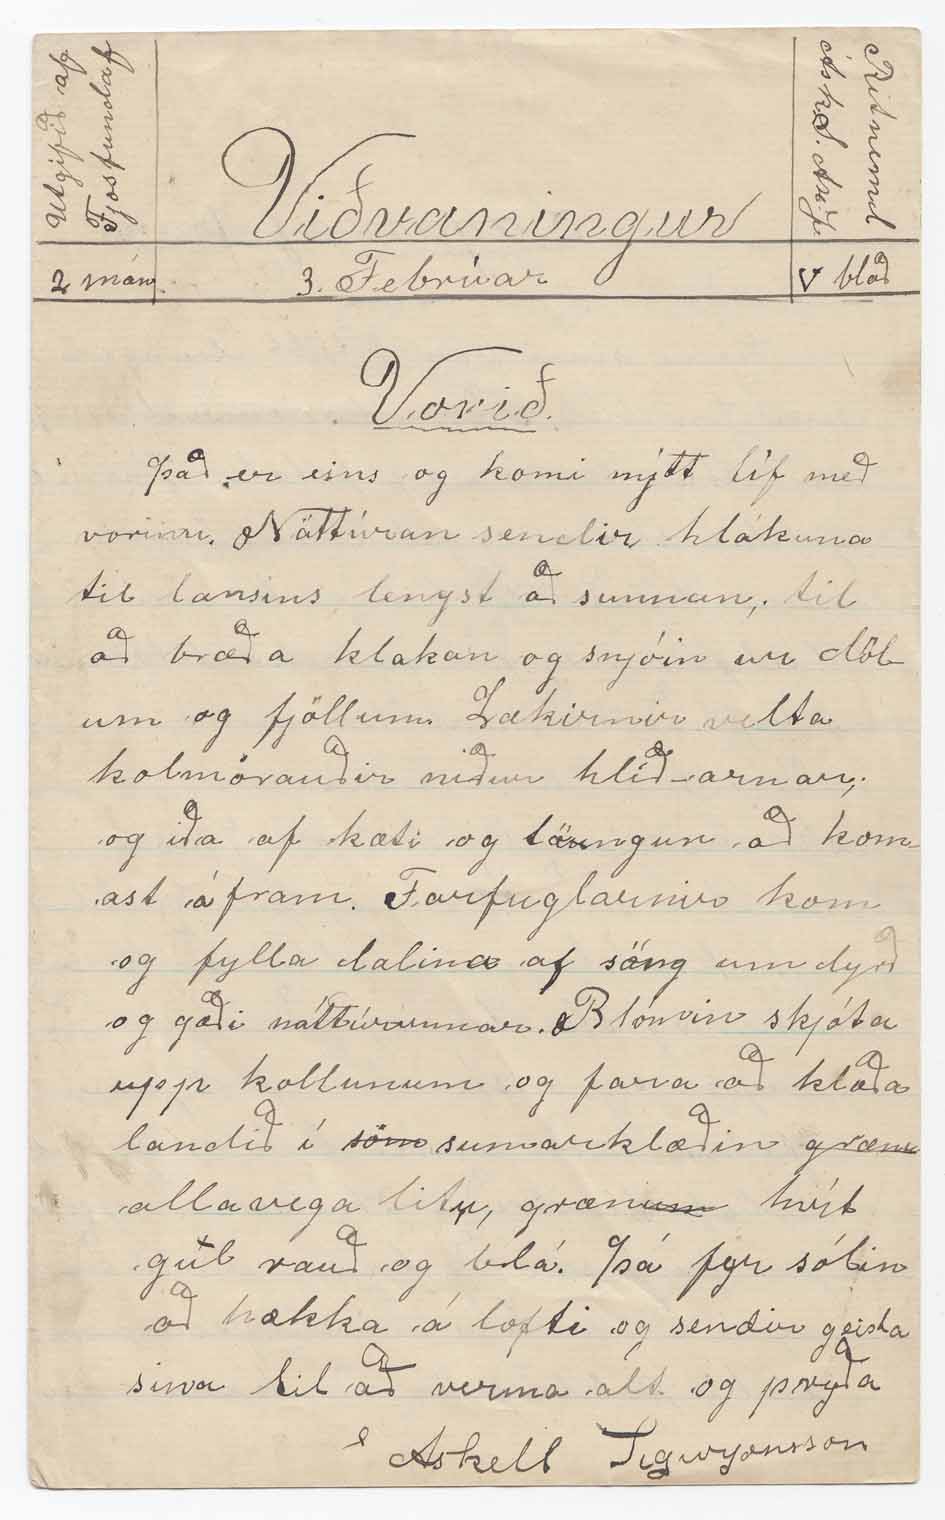 Utgifið af
Fjósfundaf
Viðvaningur
Ritnemd
Ásk. S. Arn. J.
2 mán.
3. Febrúar
V blað
Vorið.
það er eins og komi nýtt líf með
vorinu. Náttúran sendir hlákuna
til lansins lengst að sunnan, til
að bræða klakan og snjóin ur döl
um og fjöllum. Lækirnir velta
kolmórauðir niður hlíð-arnar,
og iða af kæti og löungun að kom
ast áfram. Farfuglarnir kom
og fylla dalina af söng um dyrð
og gæði náttúrunnar. Blómin skjóta
upp kollunum og fara að klæða
landið í söm sumarklæðin grænu
allavega lity, grænum hvýt
gul rauð og blá. þá fyr sólin
að hækka á lofti og sendir geista
sina til að verma alt og pryða
Áskell Sigurjonsson